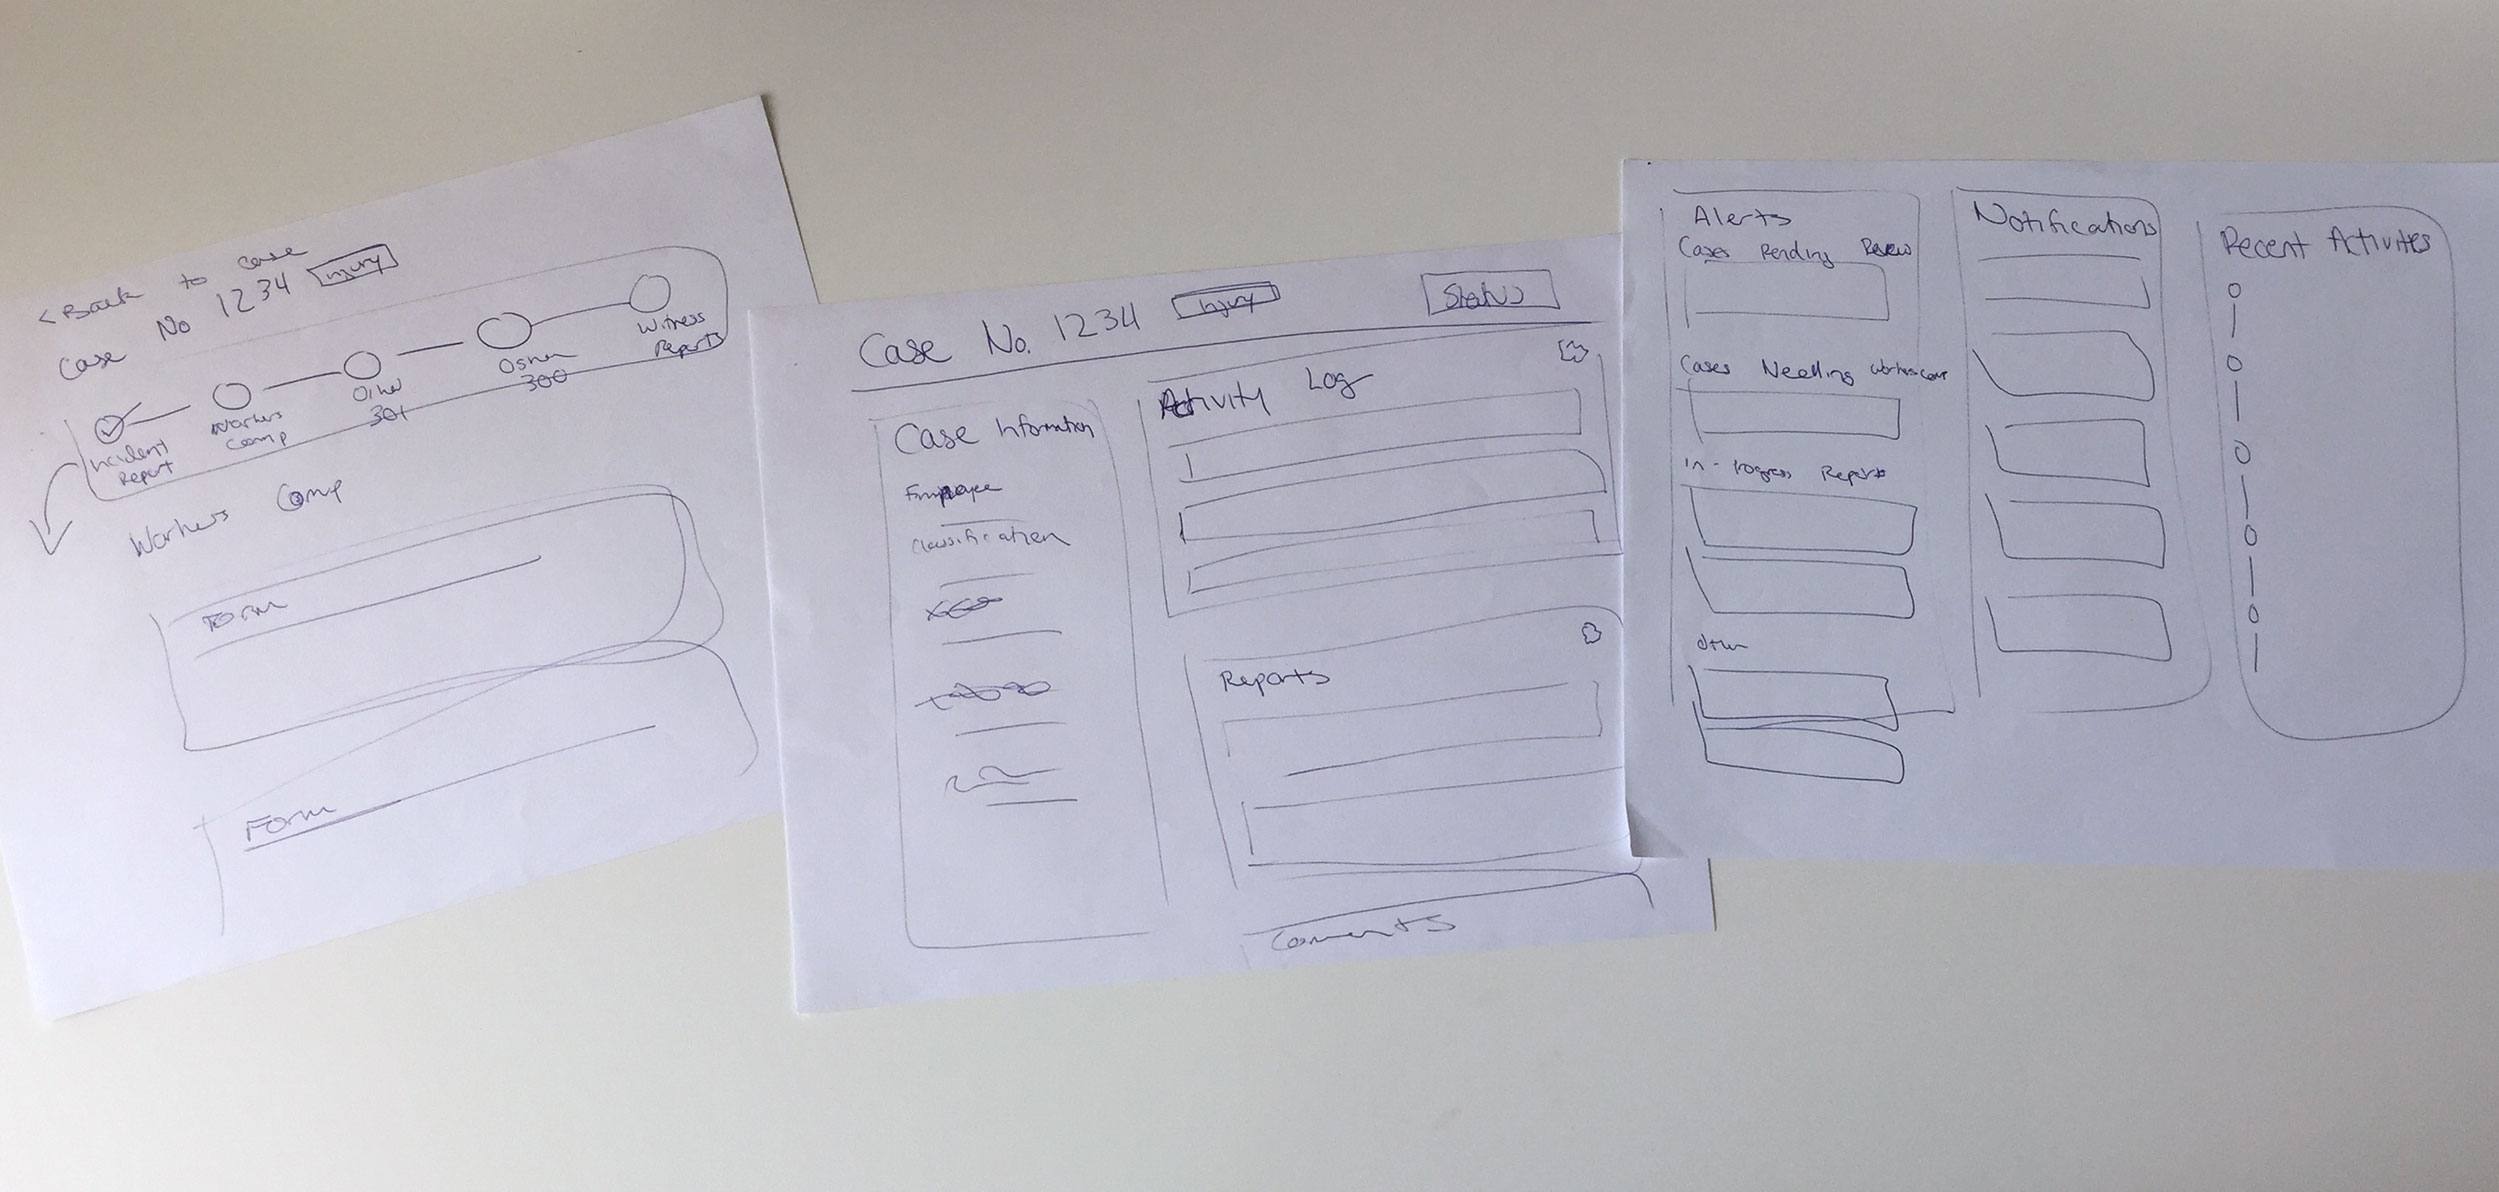 < Back to case
Case No 1234 Injury
Incident
Report
Workers
Comp
301
300
Witness
Reports
Workers Comp
Form
Form
Case No. 1234 Injury Status
Case Information
Employee
Classification
Activity Log
Reports
Comments
Alerts
Cases Pending Review
Cases Needing workers comp
In-Progress Reports
Other
Notifications
Recent Activites